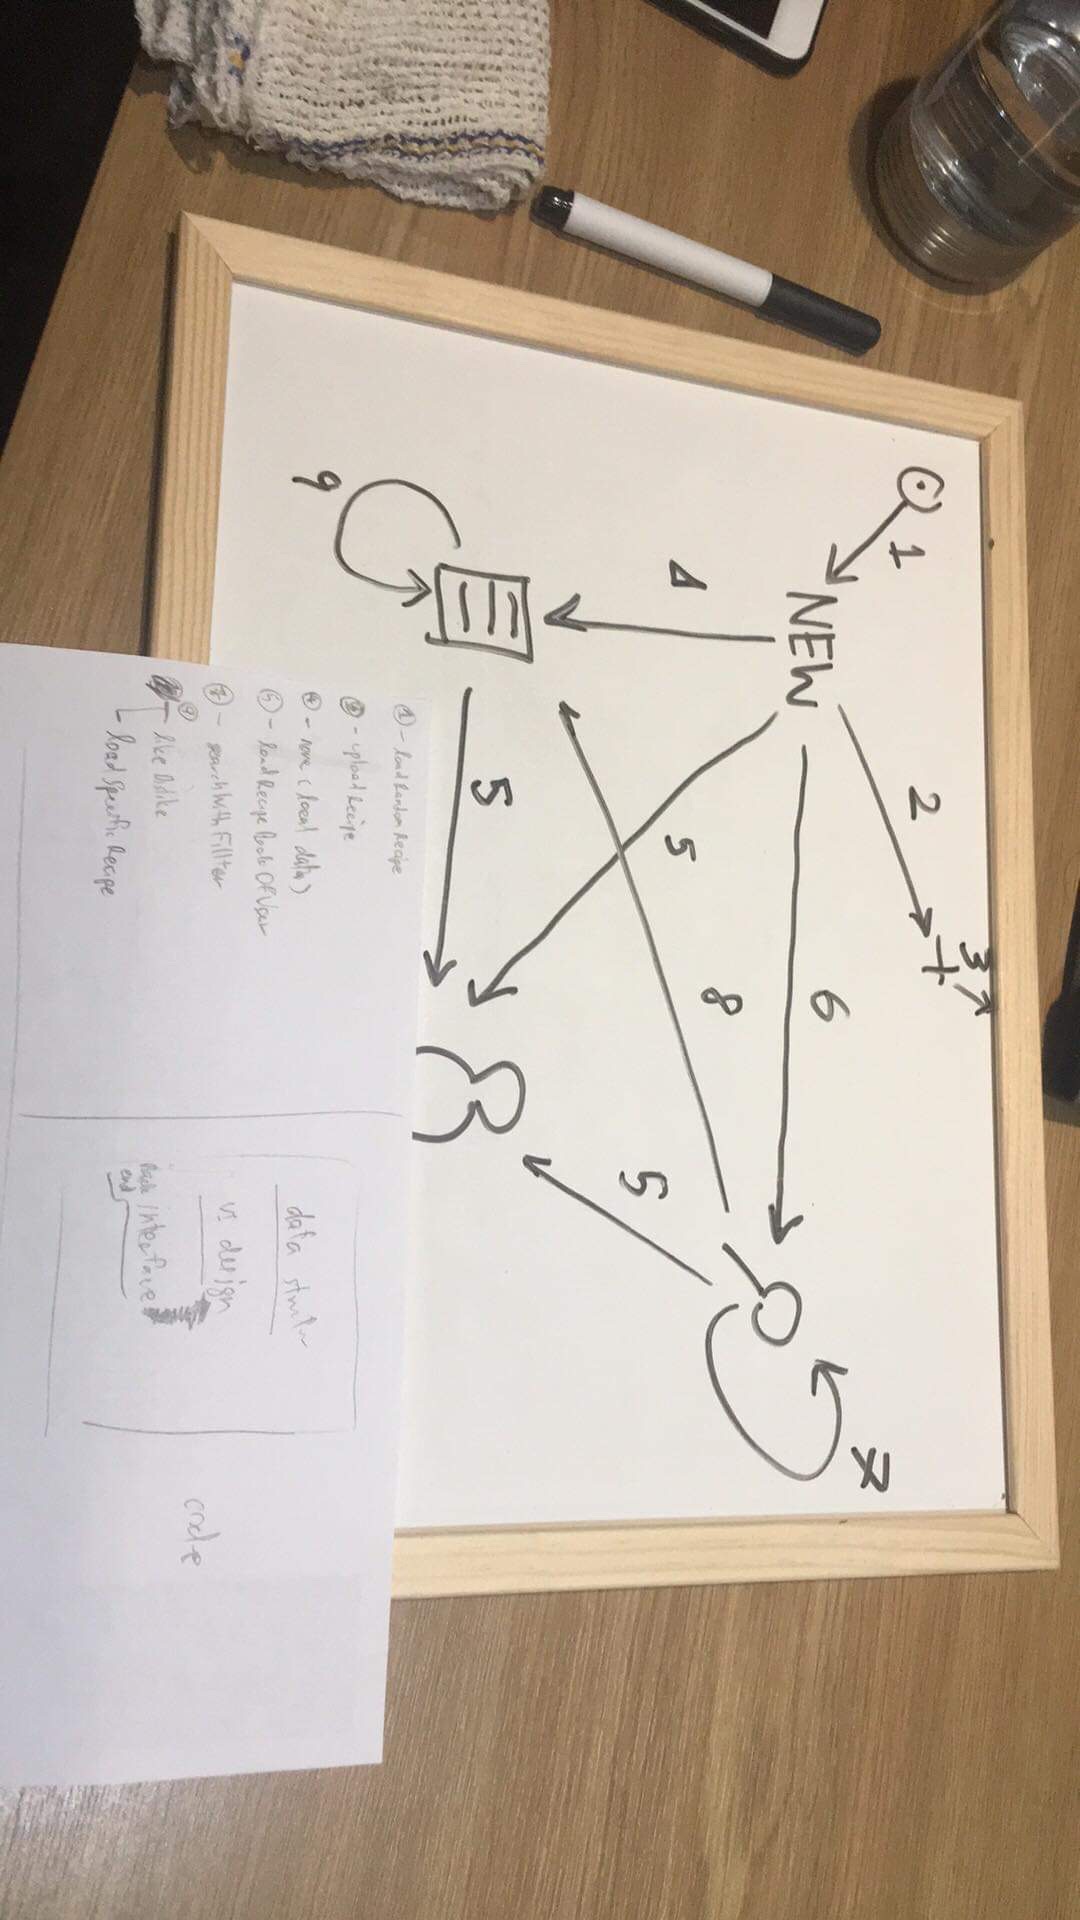 1
NEW
2
3
+
4
5
6
8
7
9
5
5
① - load Random Recipe
③ - upload Recipe
④ - none (local data)
⑤ - load Recipe Book Of User
⑦ - search With Fillter
⑨ like Dislike
load Specific Recipe
data
vs design
Back end interface
code